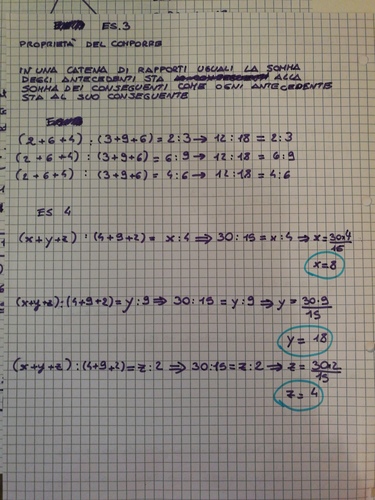 ES.3
PROPRIETA' DEL COMPORRE
IN UNA CATENA DI RAPPORTI UGUALI LA SOMMA
DEGLI ANTECEDENTI STA ALLA
SOMMA DEI CONSEGUENTI COME OGNI ANTECEDENTE
STA AL SUO CONSEGUENTE
(2+6+4) : (3+9+6) = 2:3 → 12:18 = 2:3
(2+6+4) : (3+9+6) = 6:9 → 12:18 = 6:9
(2+6+4) : (3+9+6) = 4:6 → 12:18 = 4:6
ES 4
(x+y+z) : (4+9+2) = x:4 ⇒ 30:15 = x:4 ⇒ x = 30·4/15
x=8
(x+y+z):(4+9+2)=y:9 ⇒ 30:15 = y:9 ⇒ y = 30·9/15
y = 18
(x+y+z):(4+9+2)=z:2 ⇒ 30:15=z:2 ⇒ z = 30·2/15
z= 4